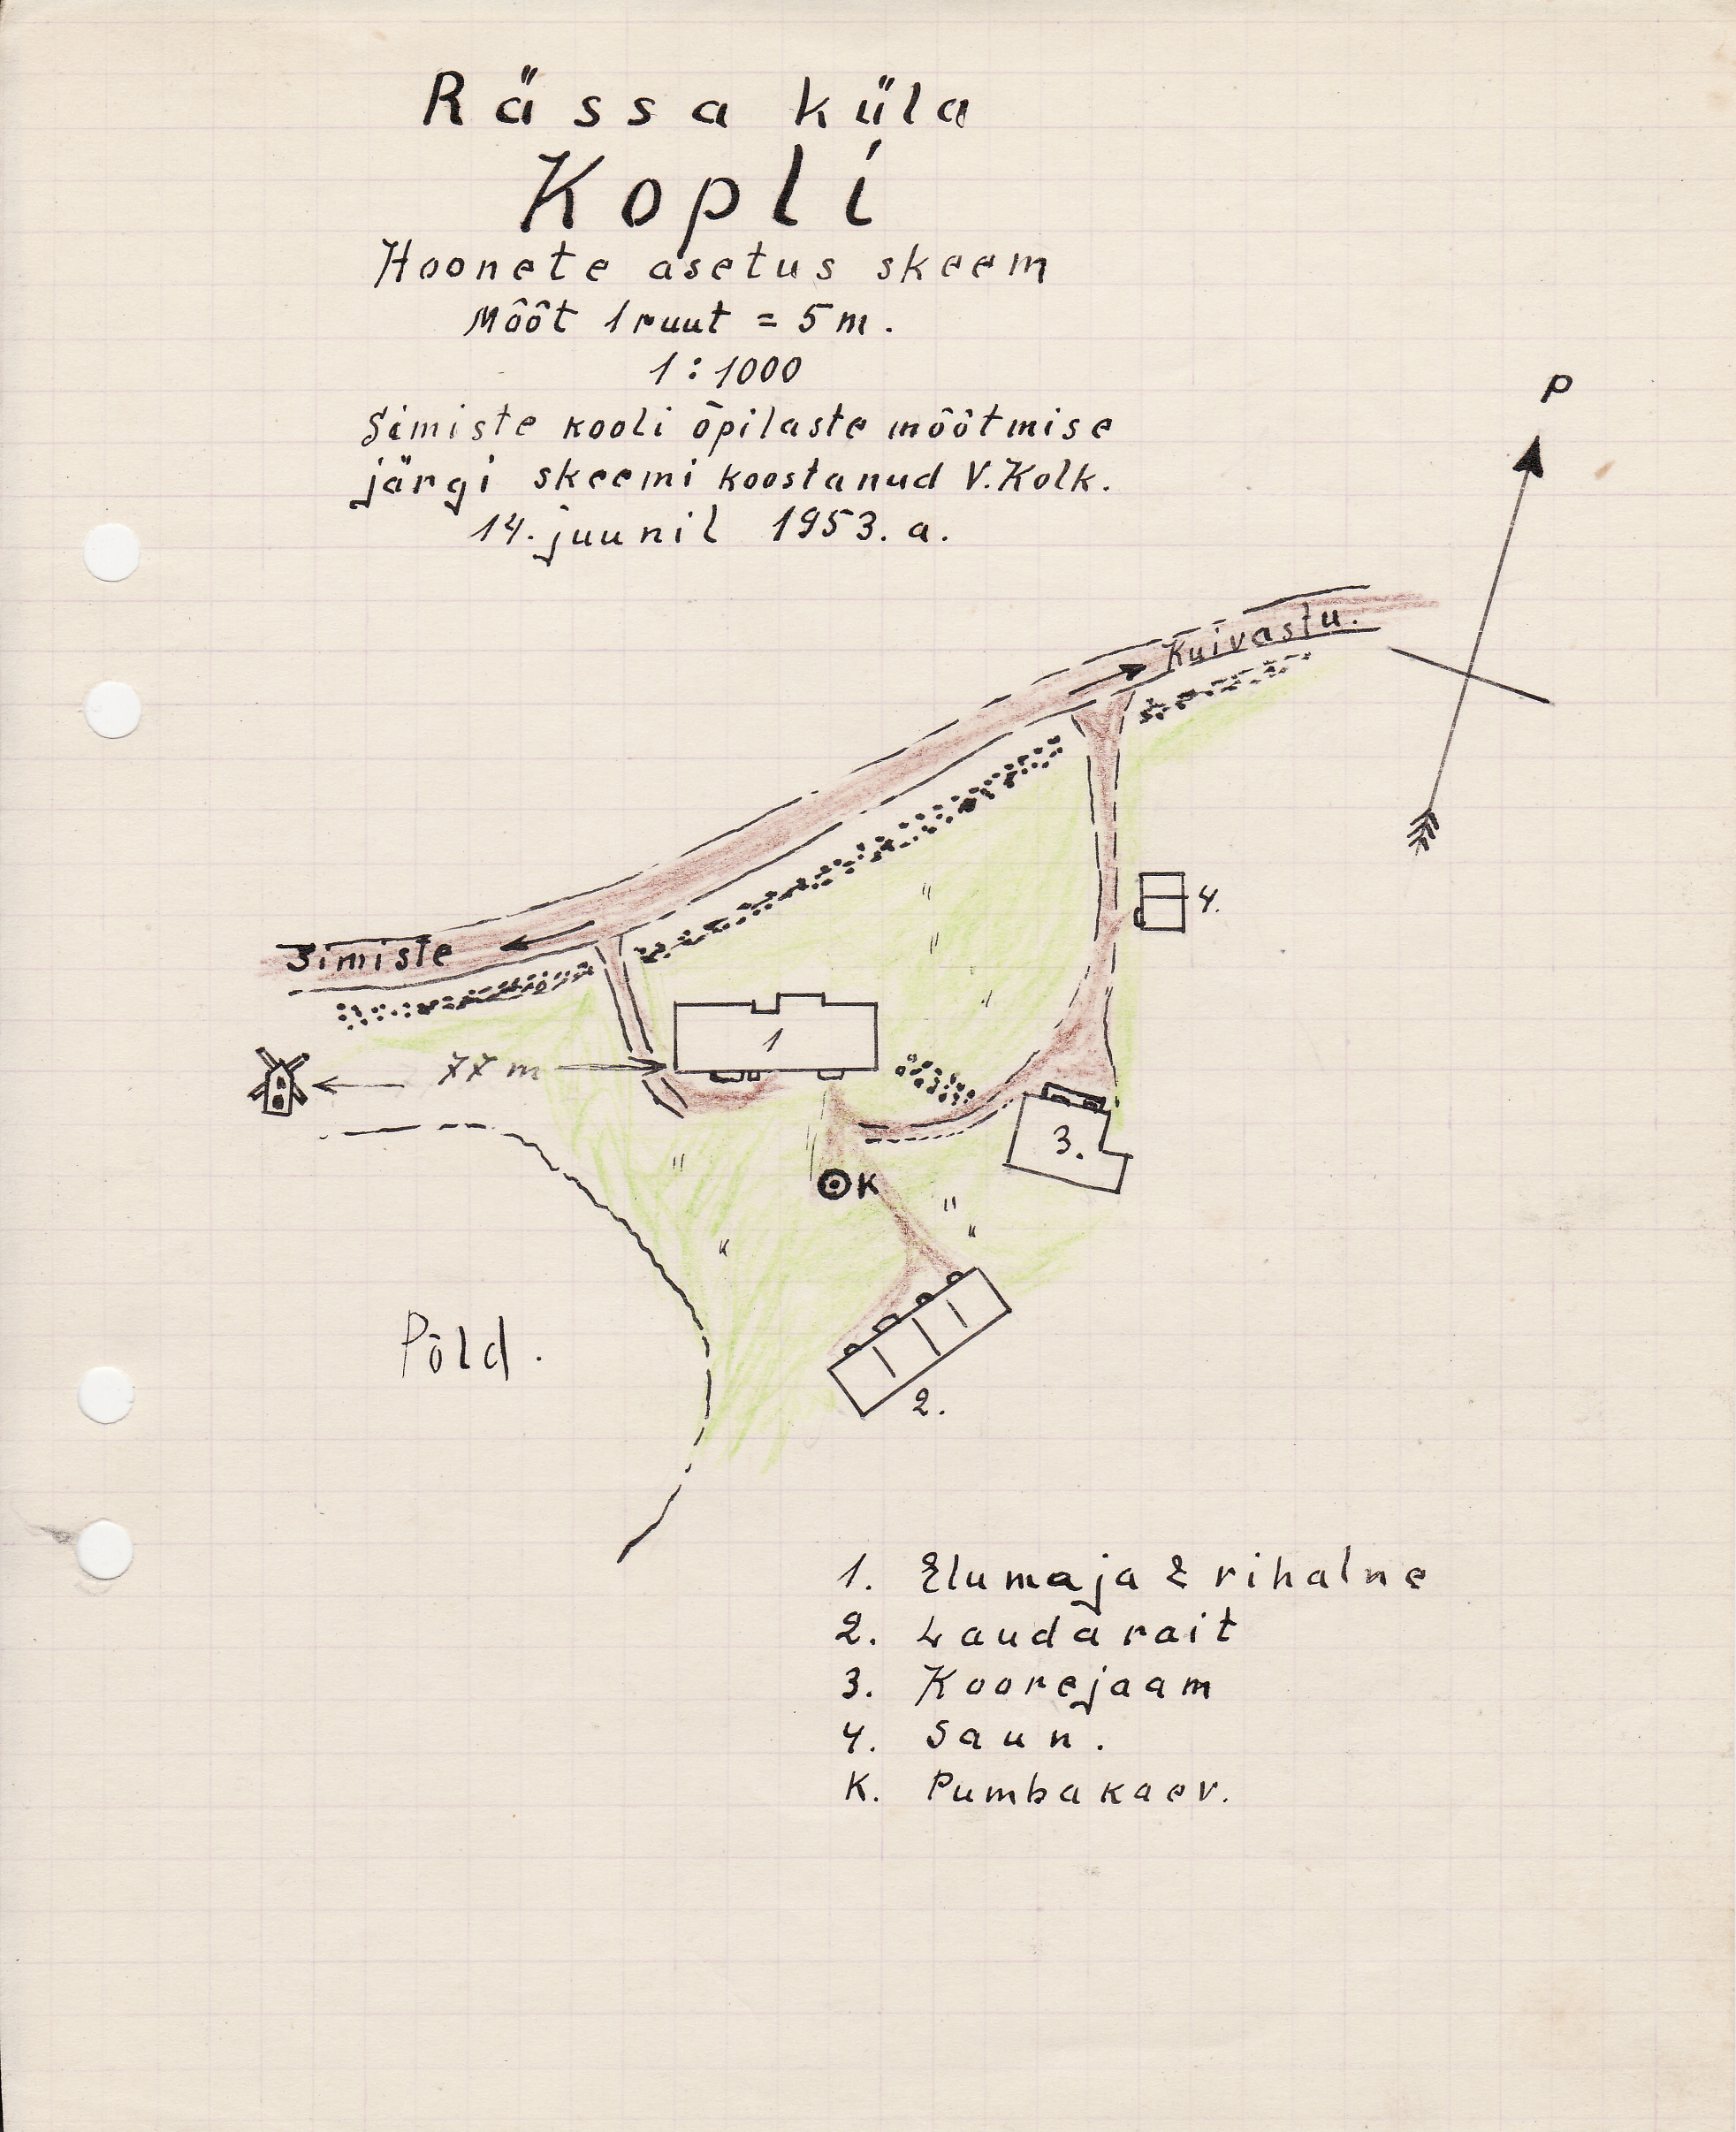 Rässa küla
Kopli
Hoonete asetus skeem
Môôt 1 ruut = 5 m.
1:1000
Simiste kooli õpilaste môôtmise
järgi skeemi koostanud V. Kolk.
14. juunil 1953. a.
P
Kuivastu.
4.
Simiste
1
77 m
3.
K
Põld.
2.
1. Elumaja & rihalne
2. Lauda rait
3. Koorejaam
4. Saun.
K. Pumbakaev.